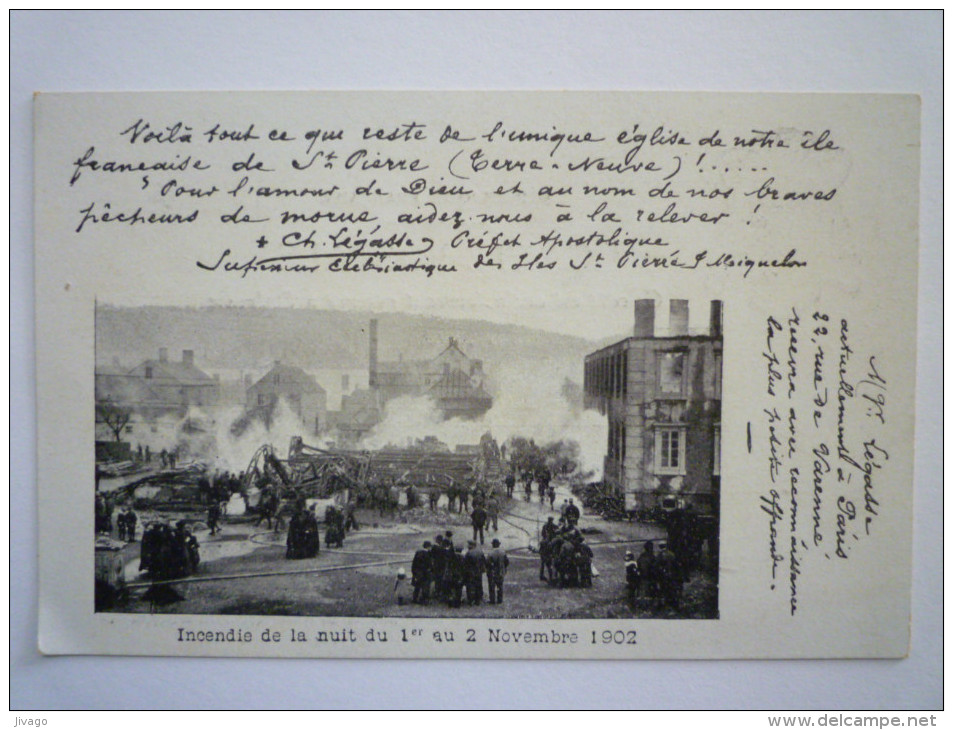 Voilà tout ce que reste de l'unique église de notre île
française de St Pierre (Terre-Neuve)!......
Pour l'amour de Dieu et au nom de nos braves
pêcheurs de morue aidez-nous à la relever!
+ Ch. Légasse, Préfet Apostolique
Supérieur Ecclésiastique des Iles St Pierre & Miquelon
Mgr Légasse
actuellement à Paris
22, rue de Varenne
recevra avec reconnaissance
la plus petite offrande.
Incendie de la nuit du 1er au 2 Novembre 1902
Jivago
www.delcampe.net